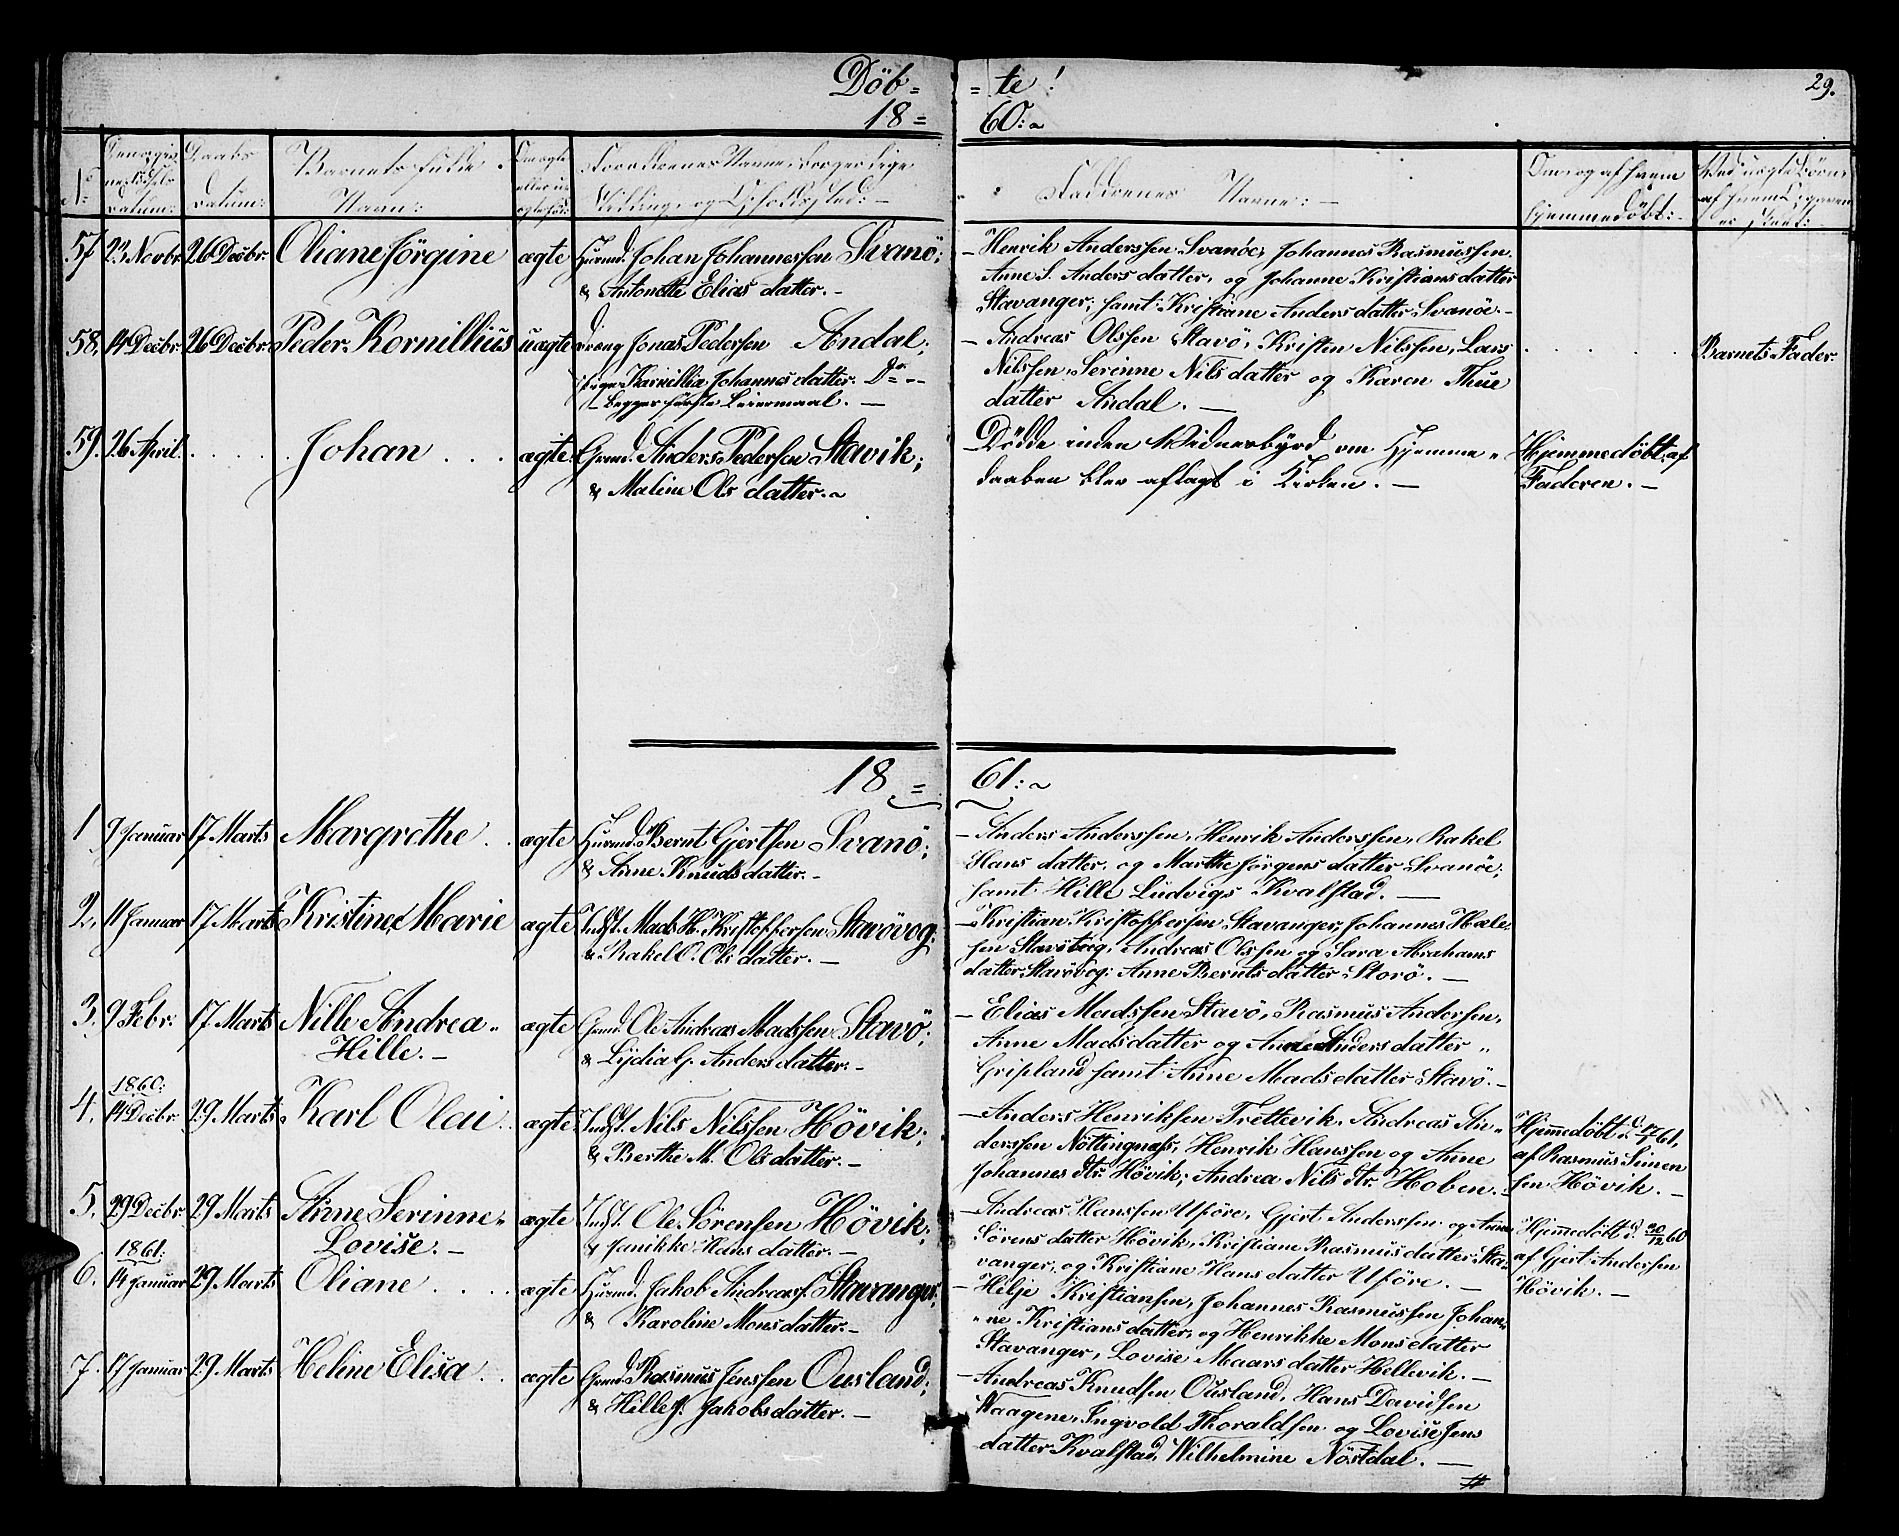 Döb= =te! 29.
18= 60:~
No
Barnets fulde Navn:
Forældrenes Navne, borgerlige
Stilling, og Opholdssted:
Faddrenes Navne:
Om og af hvem
hjemmedöbt:
57 23 Novbr. 26 Decbr. Oliane Jörgine ægte Huusmd. Johan Johannessen Svanö;
& Antonette Elias datter.
Henrik Anderssen Svanöe, Johannes Rasmussen,
Anne S. Anders datter, og Johanne Kristians datter
Stavanger; samt Kristiane Anders datter Svanöe.
58. 14 Decbr. 26 Decbr. Peder Kornillius uægte Dreng Jonas Pedersen Andal;
Pige Karnillia Johannes datter. Do
Begges förste Leiermaal.
Andreas Olssen Stavö, Kristen Nilssen, Lars
Nilssen, Serinne Nils datter og Karen Thue
datter Andal.
Barnets Fader.
59. 26 April. Johan ægte Grmd. Anders Pedersen Stavik;
& Maline Ols datter.
Dödde inden Vidnesbyrd om Hjemme
daaben blev aflagt i Kirken.
Hjemmedöbt af
Faderen.
18= 61:~
1 9 Januar 17 Marts Margrethe ægte Huusmd. Bernt Gjertsen Svanö;
& Anne Knuds datter.
Anders Anderssen, Henrik Anderssen, Rakel
Hans datter, og Marthe Jörgens datter Svanöe;
samt Hille Ludvigs Kvalstad.
2. 11 Januar 17 Marts Kristine Marie ægte Indst. Mads H. Kristoffersen Stavövog;
& Rakel O. Ols datter.
Kristian Kristoffersen Stavanger, Johannes Hele-
sen Stavsberg, Andreas Olssen og Sara Abrahams
datter Stavövog; Anne Bernts datter Storö.
3. 9 Febr. 17 Marts Nille Andrea ægte Grmd. Ole Andreas Madssen Stavö;
Hille. & Lydia G. Anders datter.
Elias Madssen Stavö, Rasmus Andersen,
Anne Madsdatter og Anne Anders datter
Gripland samt Anne Mads datter Stavö.
1860:
4. 14 Decbr 29 Marts Karl Olai ægte Indst. Nils Nilssen Hövik;
& Berthe M. Ols datter.
Anders Henriksen Trettevik, Andreas An-
derssen Nöttingnæs, Henrik Hanssen og Anne
Johannes dtr. Hövik; Andrea Nils dtr. Hoben.
Hjemmedöbt d. 17/1 61,
af Rasmus Simen
sen Hövik.
5. 29 Decbr 29 Marts Anne Serinne ægte Indst. Ole Sörensen Hövik;
Lovise. & Janikke Hans datter.
Andreas Hanssen Uföre, Gjert Anderssen og Anne
Sörens datter Hövik, Kristiane Rasmus datter Sta-
vanger, og Kristiane Hans datter Uföre.
Hjemmedöbt d. 30/12 60
af Gjert Andersen
Hövik.
1861:
6. 14 Januar 29 Marts Oliane ægte Huusmd. Jakob Andreass. Stavanger;
& Karoline Mons datter.
Helje Kristiansen, Johannes Rasmussen Johan-
ne Kristians datter, og Henrikke Mons datter
Stavanger, Lovise Maars datter Hellevik.
7. 17 Januar 29 Marts Heline Elisa ægte Grmd. Rasmus Jenssen Ousland;
& Hille J. Jakobs datter.
Andreas Knudsen Ousland, Hans Davidsen
Staagene, Ingvold Thoraldsen og Lovise Jens
datter Kvalstad, Wilhelmine Nöstdal.